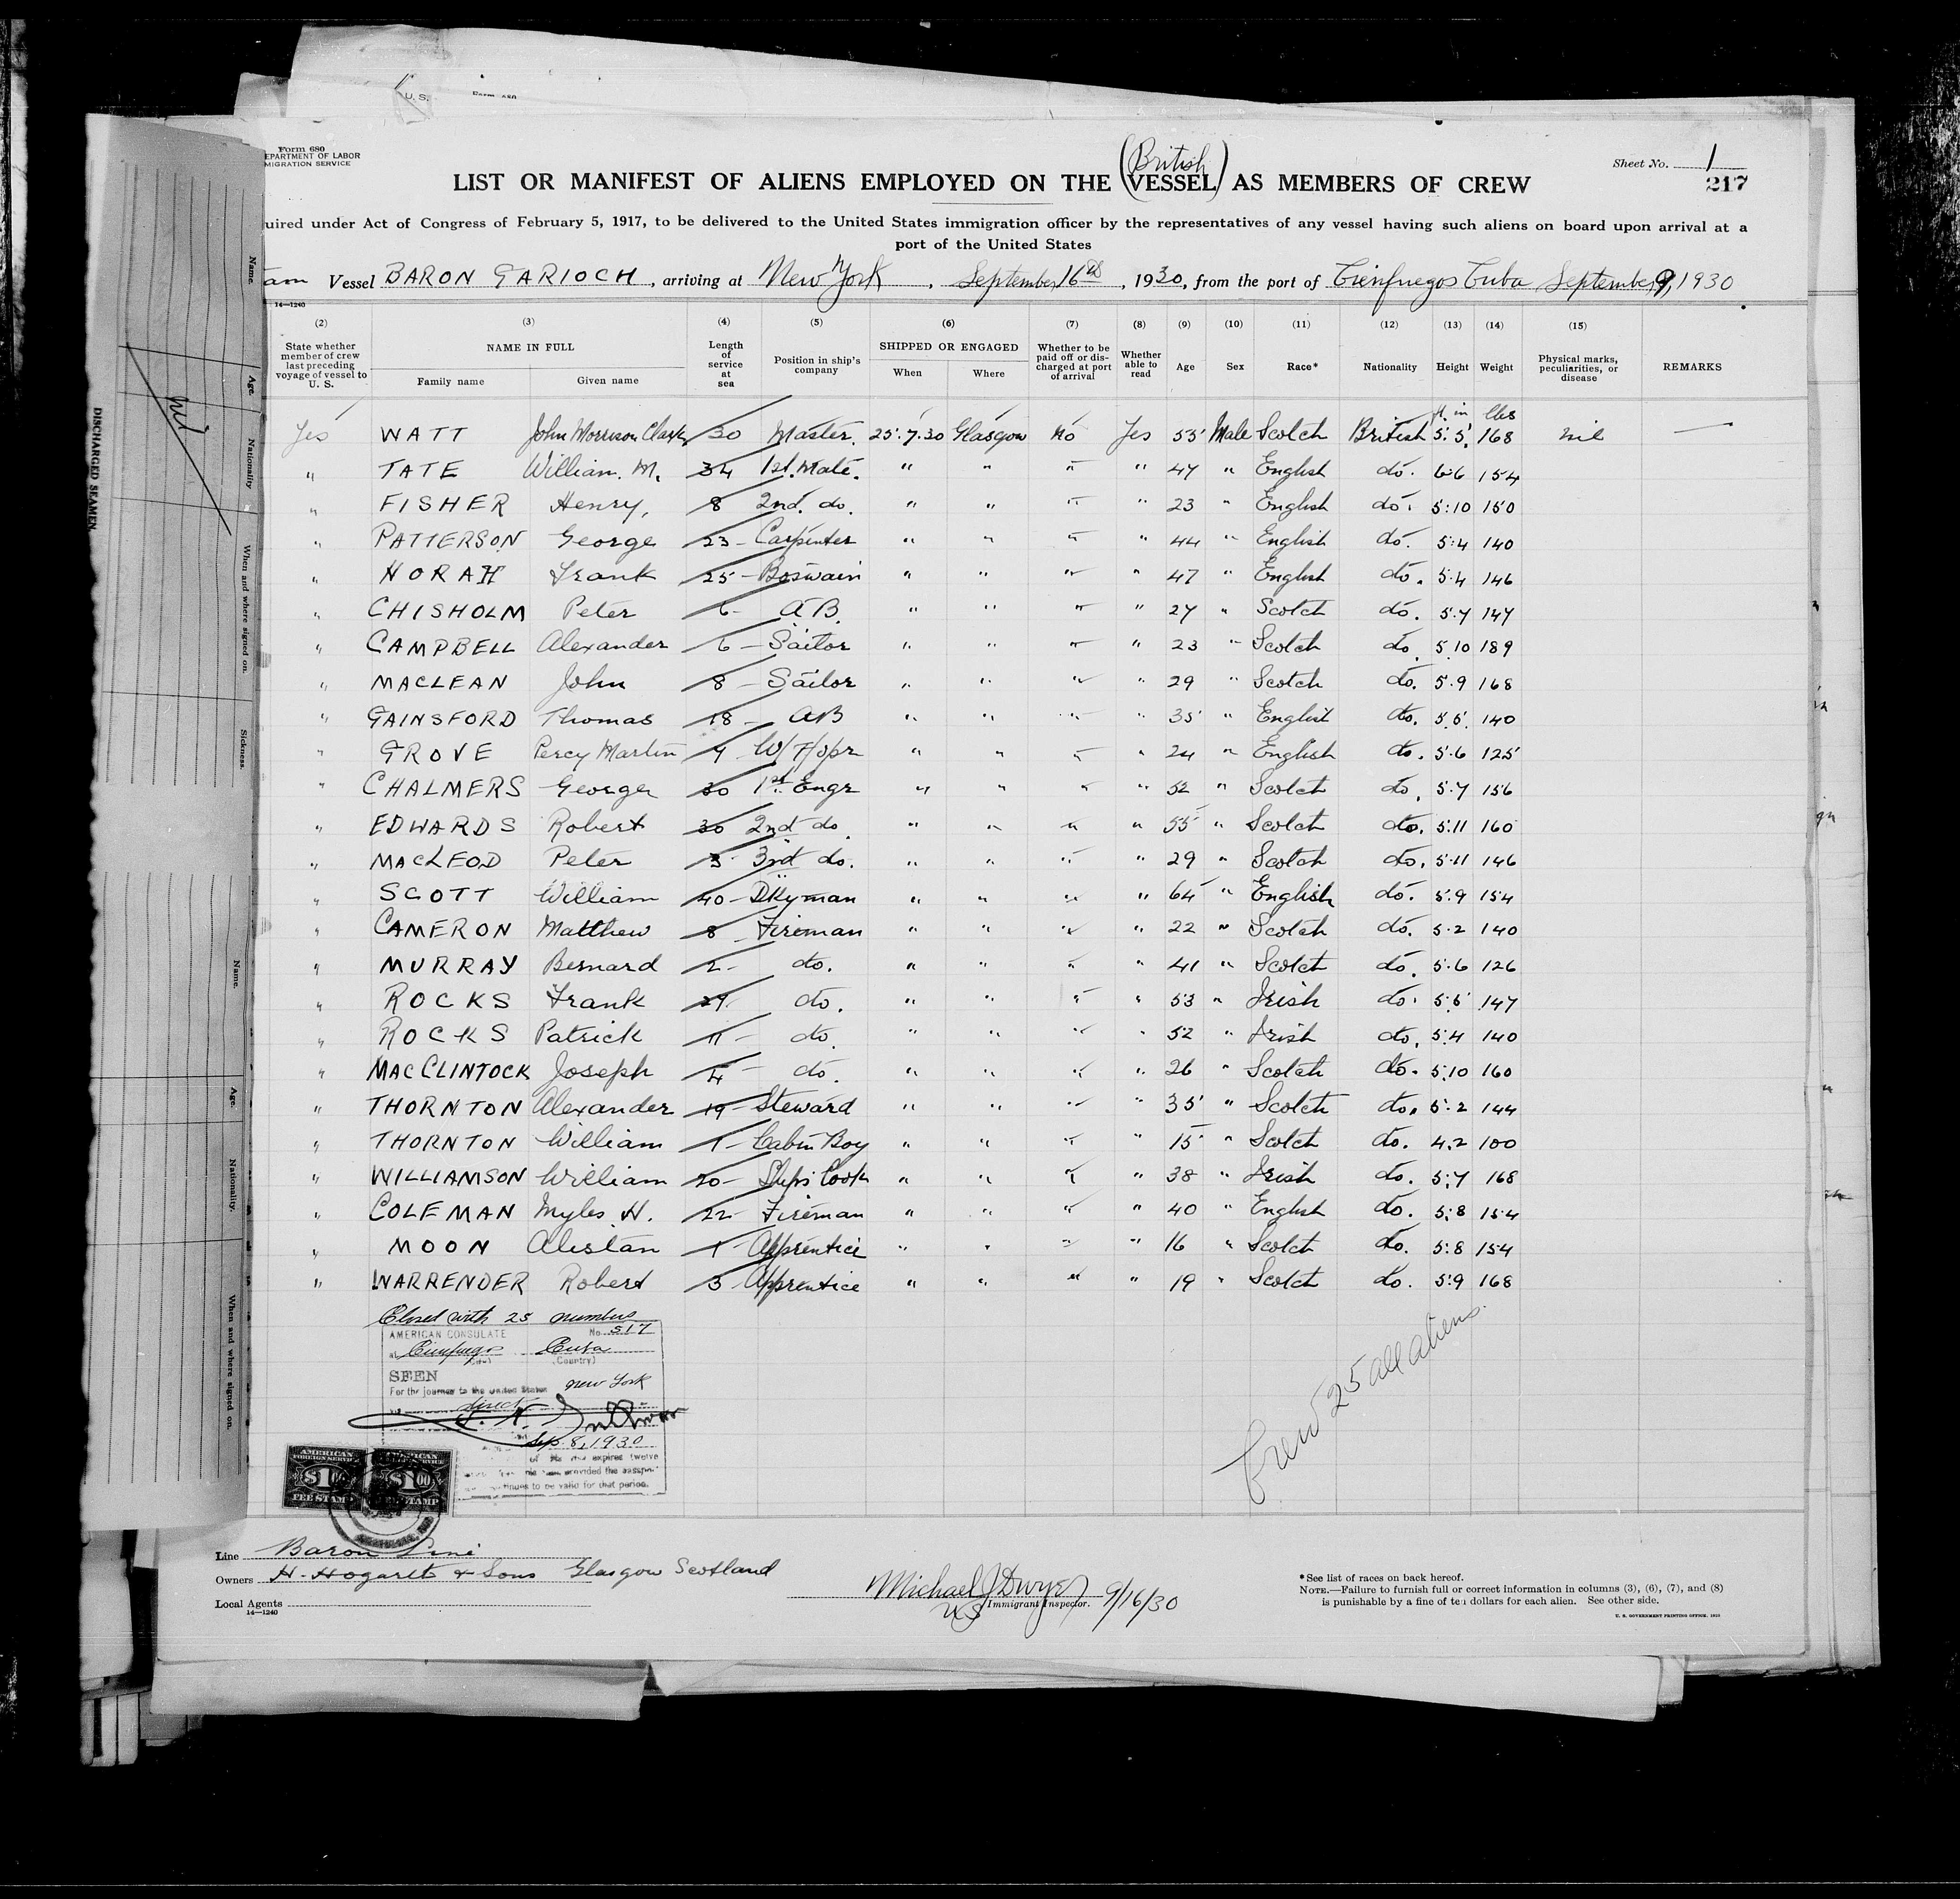 U. S.
Form 680
Form 680
EPARTMENT OF LABOR
MIGRATION SERVICE
Sheet No. 1
217
(British)
LIST OR MANIFEST OF ALIENS EMPLOYED ON THE VESSEL AS MEMBERS OF CREW
uired under Act of Congress of February 5, 1917, to be delivered to the United States immigration officer by the representatives of any vessel having such aliens on board upon arrival at a
port of the United States
am Vessel BARON GARIOCH, arriving at New York, September 16th, 1930, from the port of Cienfuegos Cuba September 9, 1930
14—1240
(2) (3) (4) (5) (6) (7) (8) (9) (10) (11) (12) (13) (14) (15)
State whether member of crew last preceding voyage of vessel to U. S.
NAME IN FULL
Family name Given name
Length of service at sea
Position in ship's company
SHIPPED OR ENGAGED
When Where
Whether to be paid off or discharged at port of arrival
Whether able to read
Age Sex Race* Nationality Height Weight
Physical marks, peculiarities, or disease
REMARKS
ft. in lbs
Yes WATT John Morrison Clark 30 Master. 25.7.30 Glasgow No Yes 55 Male Scotch British 5.5. 168 nil —
" TATE William. M. 34 1st. Mate. " " " " 47 " English do. 6.6 154
" FISHER Henry, 8 2nd. do. " " " " 23 " English do. 5:10 150
" PATTERSON George 23 - Carpenter " " " " 44 " English do. 5:4 140
" HORAH Frank 25 - Boswain " " " " 47 " English do. 5.4 146
" CHISHOLM Peter 6 - A B. " " " " 27 " Scotch do. 5.7 147
" CAMPBELL Alexander 6 - Sailor " " " " 23 " Scotch do. 5.10 189
" MACLEAN John 8 - Sailor " " " " 29 " Scotch do. 5.9 168
" GAINSFORD Thomas 18 - AB " " " " 35 " English do. 5.5. 140
" GROVE Percy Martin 4 W/T/opr " " " " 24 " English do. 5.6 125
" CHALMERS George 30 1st. Engr " " " " 52 " Scotch do. 5.7 156
" EDWARDS Robert 30 2nd do. " " " " 55 " Scotch do. 5:11 160
" MACLEOD Peter 3 3rd do. " " " " 29 " Scotch do. 5.11 146
" SCOTT William 40 - Dkyman " " " " 64 " English do. 5.9 154
" CAMERON Matthew 8 - Fireman " " " " 22 " Scotch do. 5.2 140
" MURRAY Bernard 2 - do. " " " " 41 " Scotch do. 5.6 126
" ROCKS Frank 29 do. " " " " 53 " Irish do. 5.5 147
" ROCKS Patrick 11 - do. " " " " 52 " Irish do. 5.4 140
" MACCLINTOCK Joseph 4 - do. " " " " 26 " Scotch do. 5.10 160
" THORNTON Alexander 19 - Steward " " " " 35 " Scotch do. 5.2 144
" THORNTON William 1 - Cabin Boy " " " " 15 " Scotch do. 4.2 100
" WILLIAMSON William 20 - Ships Cook " " " " 38 " Irish do. 5:7 168
" COLEMAN Myles H. 22 - Fireman " " " " 40 " English do. 5:8 154
" MOON Alistan 1 - Apprentice " " " " 16 " Scotch do. 5:8 154
" WARRENDER Robert 3 - Apprentice " " " " 19 " Scotch do. 5:9 168
Closed with 25 members
AMERICAN CONSULATE No. 517
at Cienfuegos Cuba
(City) (Country)
SEEN
For the journey to the United States New York
direct
Sep. 8, 1930
expires twelve
provided the passport
tinues to be valid for that period.
AMERICAN FOREIGN SERVICE
$1.00
FEE STAMP
$1.00
STAMP
Crew 25 all aliens
Line Baron Line
Owners H. Hogarth & Sons Glasgow Scotland
Local Agents
14—1240
Michael J Dwyer 9/16/30
US Immigrant Inspector.
*See list of races on back hereof.
NOTE.—Failure to furnish full or correct information in columns (3), (6), (7), and (8)
is punishable by a fine of ten dollars for each alien. See other side.
U. S. GOVERNMENT PRINTING OFFICE. 1925
DISCHARGED SEAMEN.
Name.
Age.
Nationality
When and where signed on.
Sickness.
nil
Name.
Age.
Nationality.
When and where signed on.